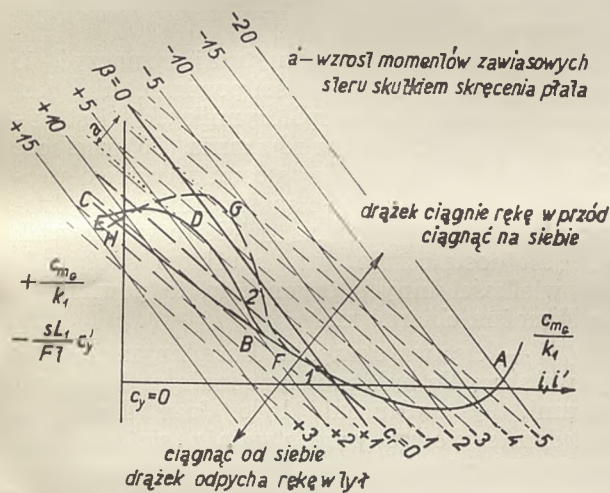 -20
-15
-10
-5
β=0
+5
+10
+15
a – wzrost momentów zawiasowych
steru skutkiem skręcenia płata
a
C
E
H
D
G
drążek ciągnie rękę w przód
ciągnąć na siebie
+ c_mG / k₁
- sL₁ / Fl c'y
2
B
F
1
A
c_mG / k₁
i, i'
c_y=0
+3
+2
+1
c=0
1
2
3
4
5
ciągnąć od siebie
drążek odpycha rękę w tył